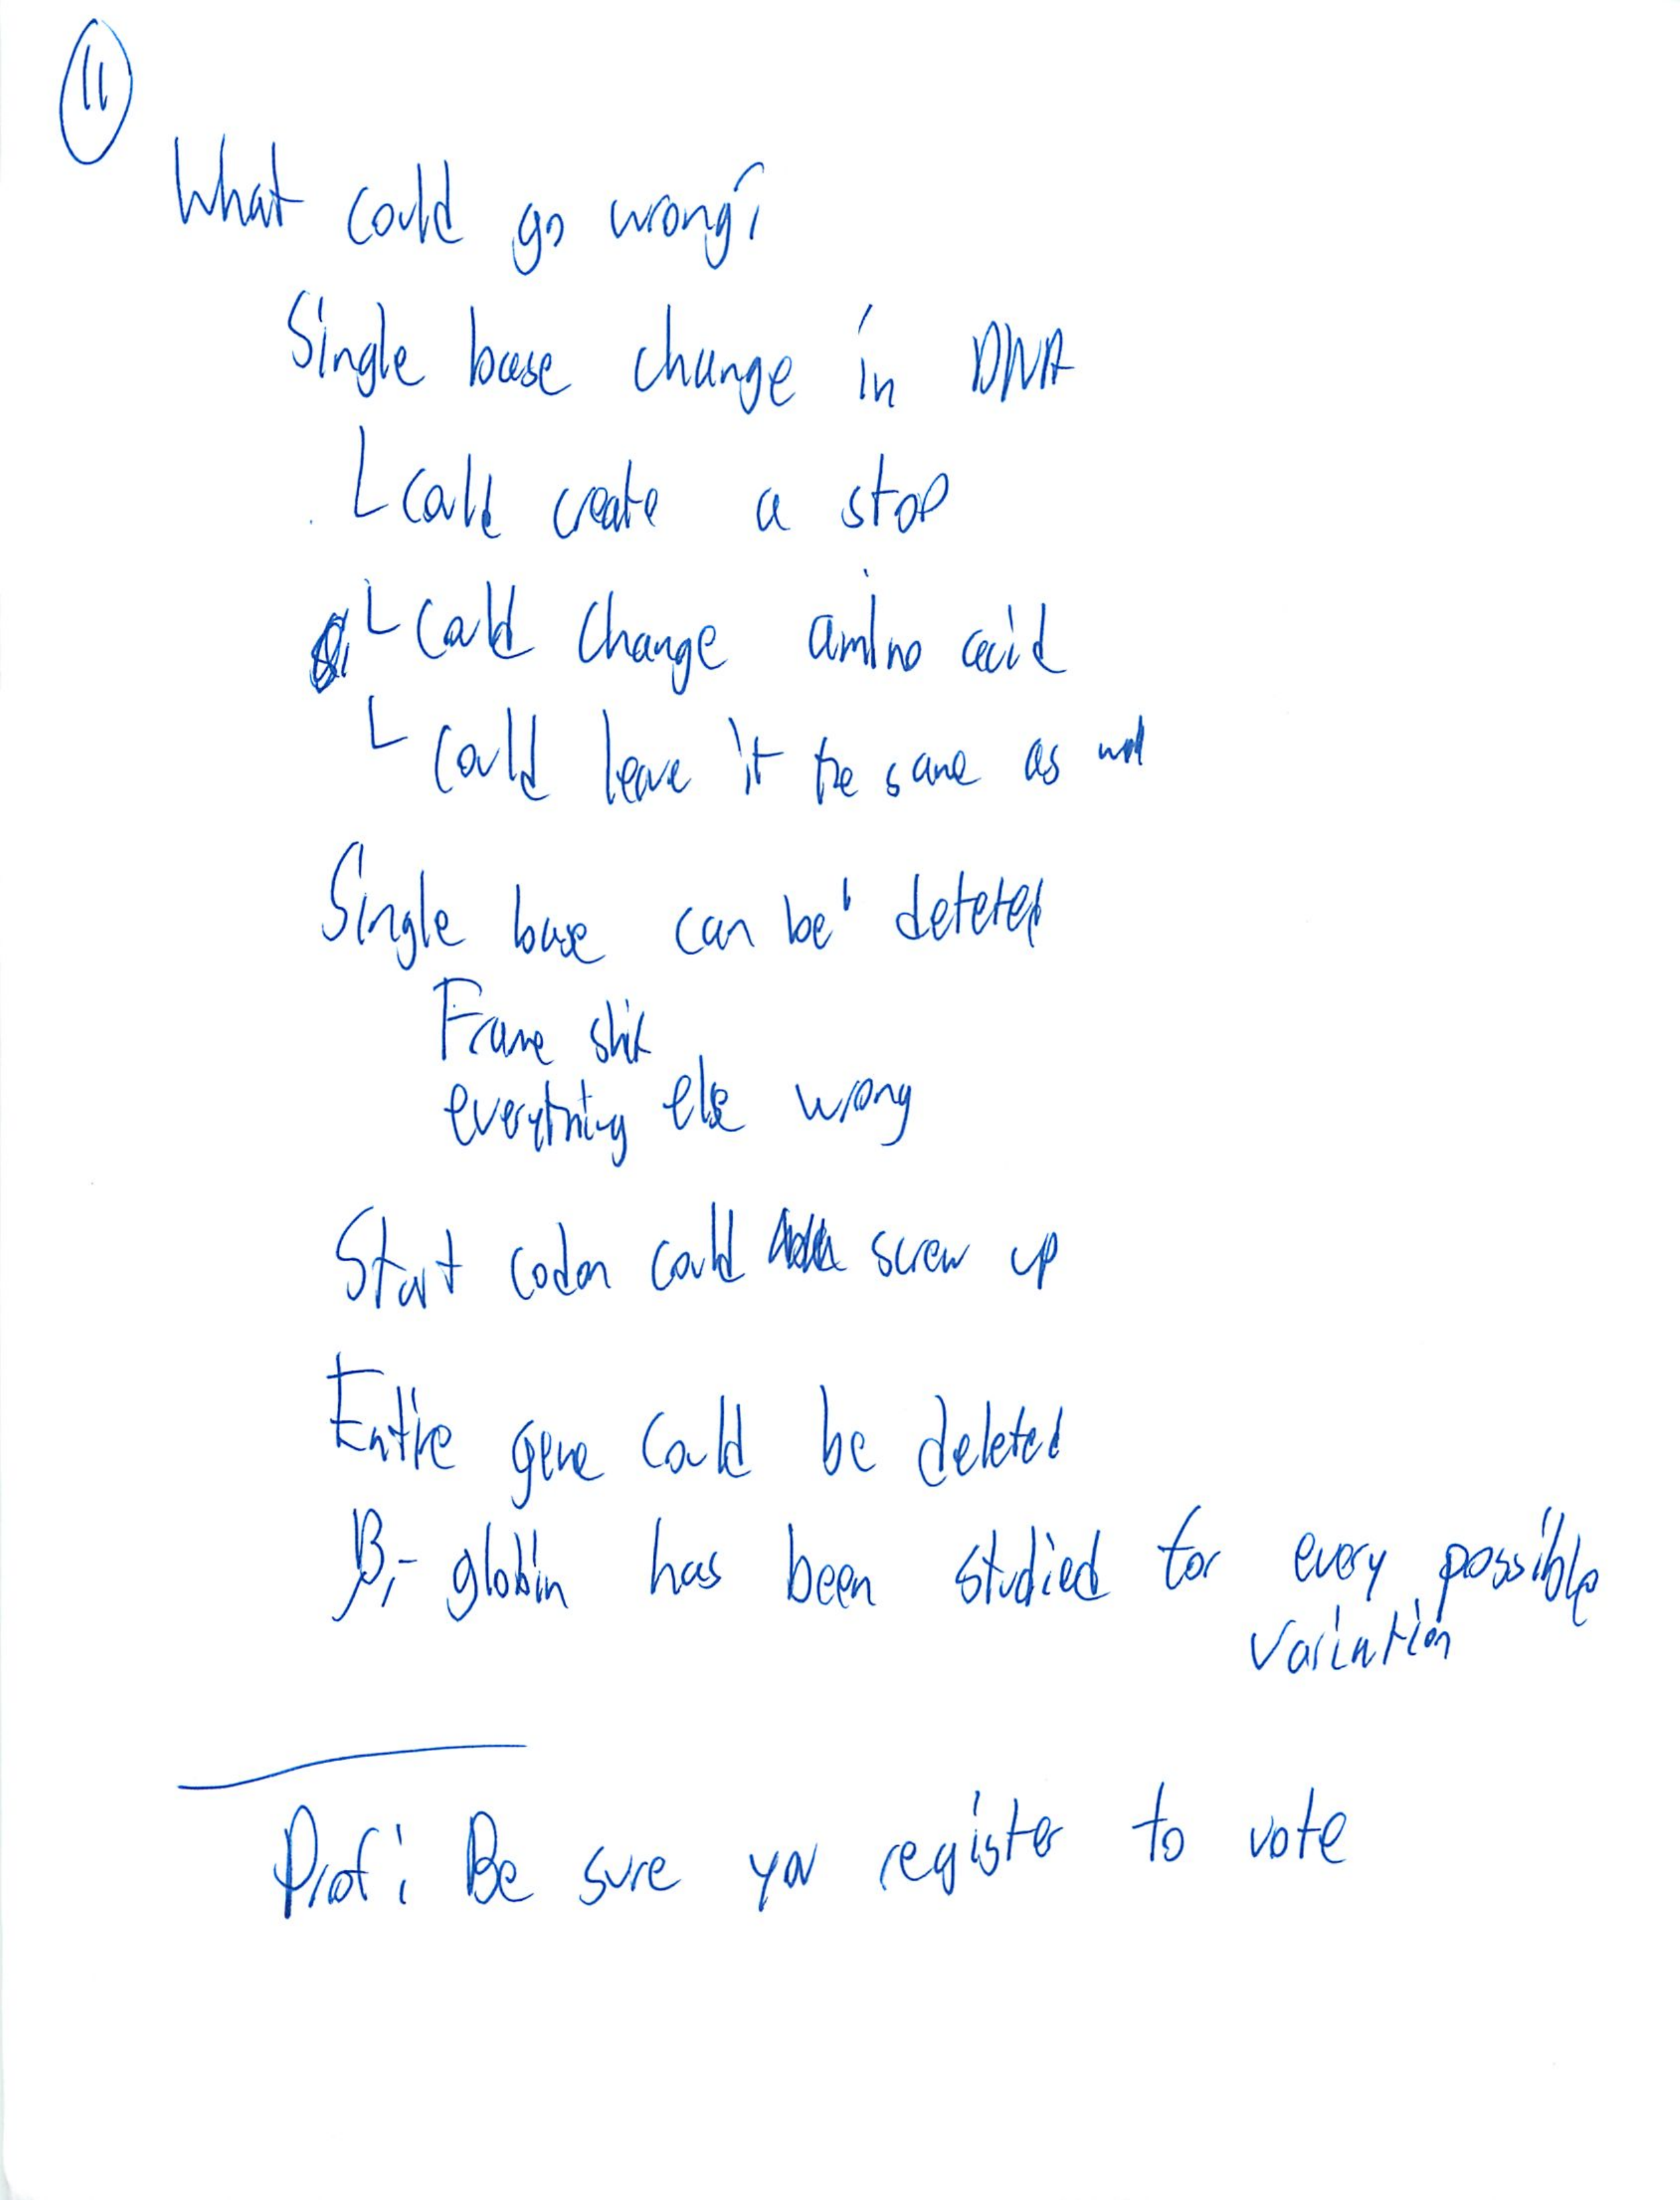 11
What could go wrong?
Single base change in DNA
L could create a stop
L could change amino acid
L could leave it the same as well
Single base can be deleted
Frame shift
everything else wrong
Start codon could screw up
Entire gene could be deleted
β-globin has been studied for every possible
variation
Prof: Be sure you register to vote